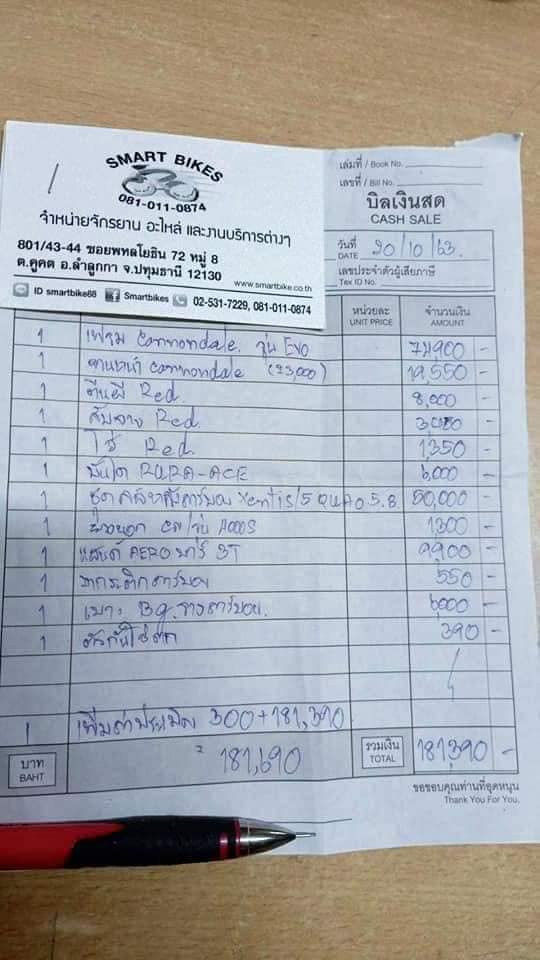 SMART BIKES
081-011-0874
จำหน่ายจักรยาน อะไหล่ และงานบริการต่างๆ
801/43-44 ซอยพหลโยธิน 72 หมู่ 8
ต.คูคต อ.ลำลูกกา จ.ปทุมธานี 12130
www.smartbike.co.th
ID smartbike88 Smartbikes 02-531-7229, 081-011-0874
เล่มที่ / Book No.
เลขที่ / Bill No.
บิลเงินสด
CASH SALE
วันที่ DATE 20/10/63
เลขประจำตัวผู้เสียภาษี
Tex ID No.
หน่วยละ จำนวนเงิน
UNIT PRICE AMOUNT
1 เฟรม Cannondale รุ่น EVO 74,900 -
1 จานหน้า Cannondale (23,000) 19,550 -
1 ตีนผี Red. 8,000 -
1 สับจาน Red. -
1 โซ่ Red. 1,350 -
1 DURA-ACE 6,000 -
1 50,000 -
1 ยางนอก 1,300 -
1 แฮนด์ AERO บาร์ 3T 9,900 -
1 ขากระติกคาร์บอน 550 -
1 เบาะ รางคาร์บอน 6,000 -
1 ตัวกันโซ่ตก 390 -
1 300+181,390
181,690
บาท
BAHT
รวมเงิน
TOTAL
181,390 -
ขอขอบคุณท่านที่อุดหนุน
Thank You For You.